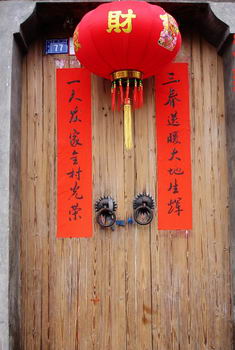 77
财
三春送暖大地生辉
一人家全村光荣